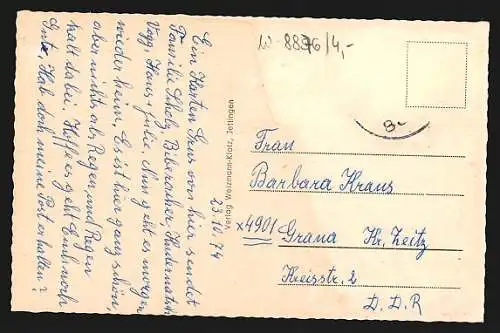 Ein Karten Grus von hier sendet
Familie Scholz, Biberacher,
Vogg, Hans + Julie. Nun geht es morgen
wieder heim. Es ist hier ganz schön,
aber nichts als Regen und Regen
halt dabei. Hoffe es geht Euch noch
Gut. Hab doch meine Post erhalten?
23.10.74
Verlag Weizmann-Klotz, Dettingen
W-8876/4,-
Frau
Barbara Kraus
x4901 Grana Kr. Zeitz
Kreisstr. 2
D. D. R